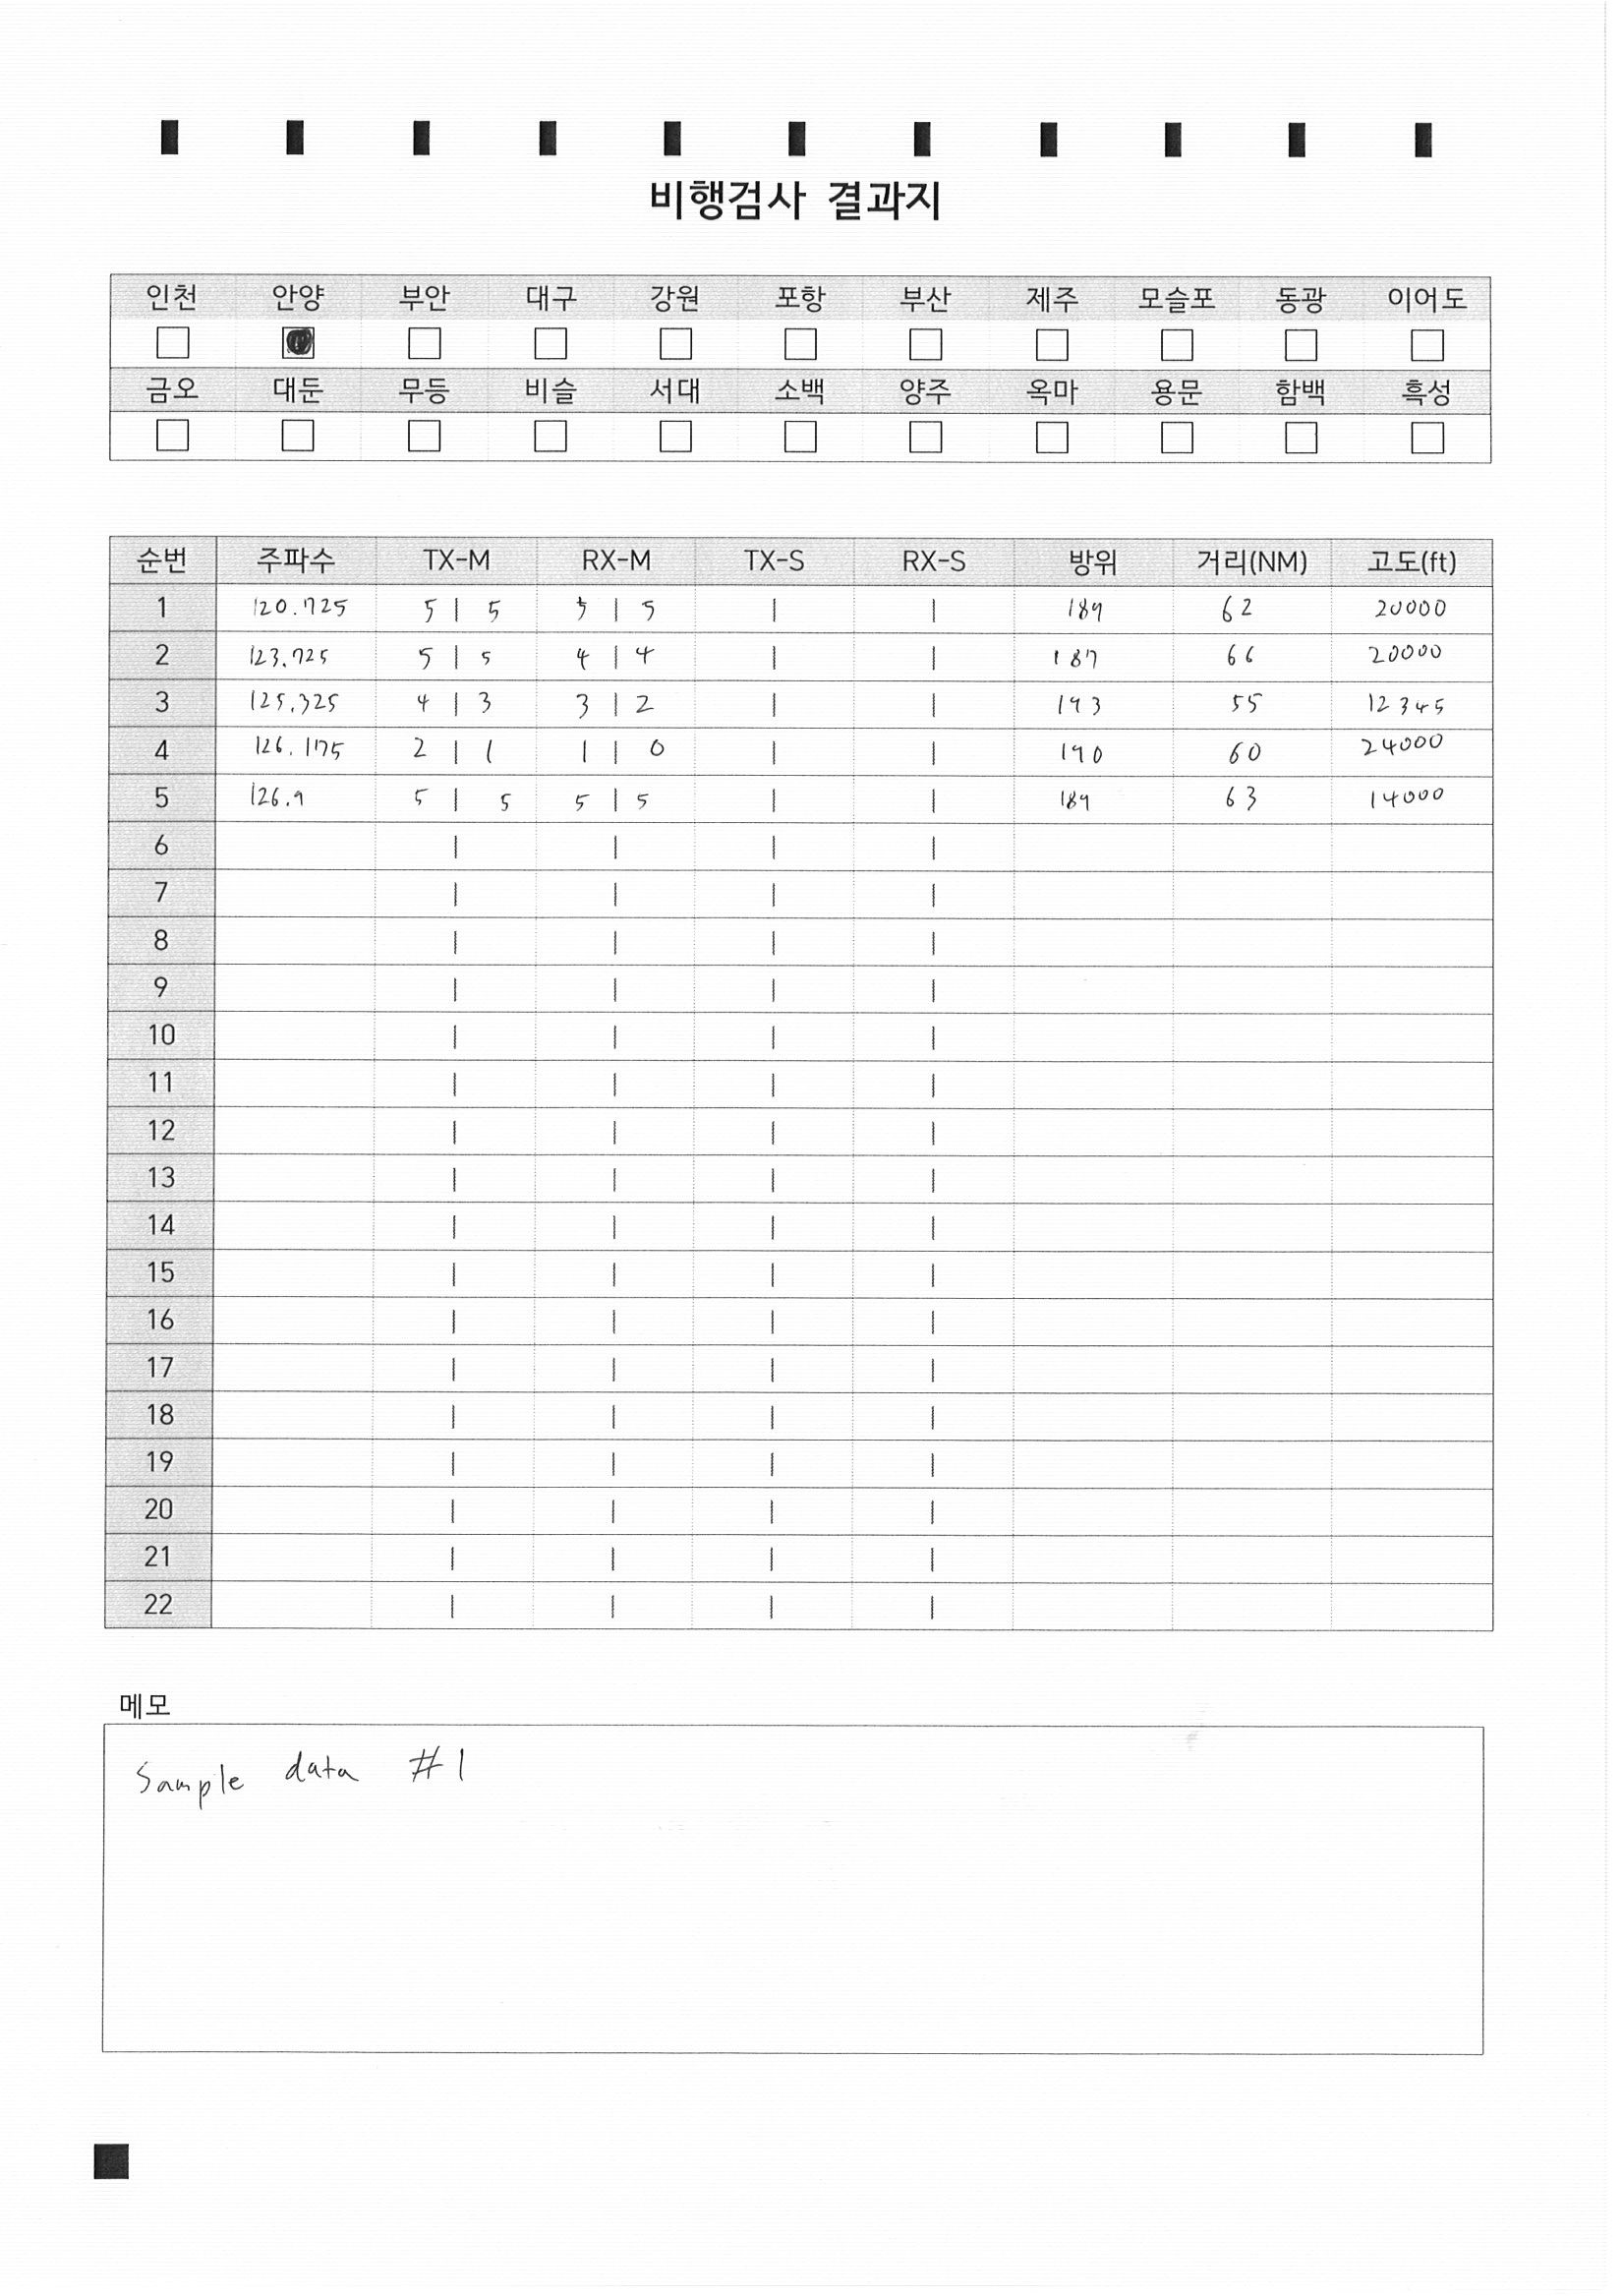 비행검사 결과지
인천 안양 부안 대구 강원 포항 부산 제주 모슬포 동광 이어도
금오 대둔 무등 비슬 서대 소백 양주 옥마 용문 함백 흑성
순번 주파수 TX-M RX-M TX-S RX-S 방위 거리(NM) 고도(ft)
1 120.725 5 | 5 5 | 5 | | 189 62 20000
2 123.725 5 | 5 4 | 4 | | 187 66 20000
3 125.325 4 | 3 3 | 2 | | 193 55 12345
4 126.175 2 | 1 1 | 0 | | 190 60 24000
5 126.9 5 | 5 5 | 5 | | 189 63 14000
6 | | | |
7 | | | |
8 | | | |
9 | | | |
10 | | | |
11 | | | |
12 | | | |
13 | | | |
14 | | | |
15 | | | |
16 | | | |
17 | | | |
18 | | | |
19 | | | |
20 | | | |
21 | | | |
22 | | | |
메모
Sample data #1